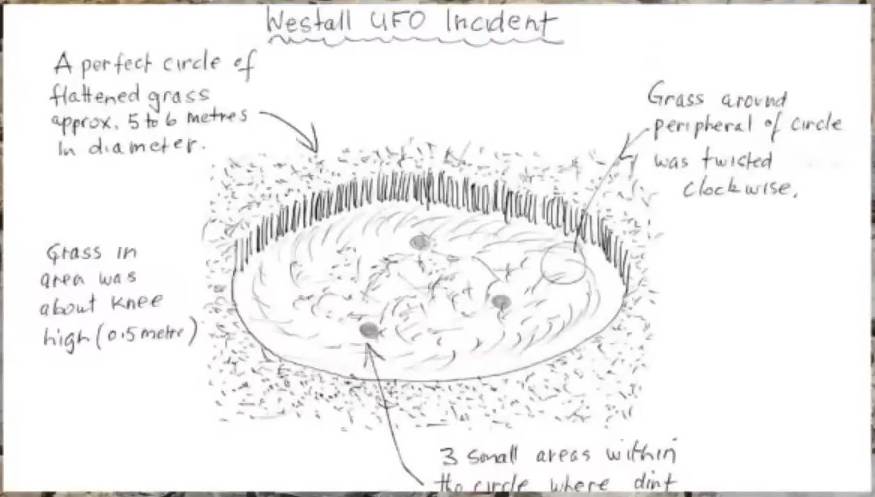 Westall UFO Incident
A perfect circle of
flattened grass
approx. 5 to 6 metres
In diameter.
Grass around
peripheral of circle
was twisted
clockwise.
Grass in
area was
about knee
high (0.5 metre)
3 small areas within
the circle where dint